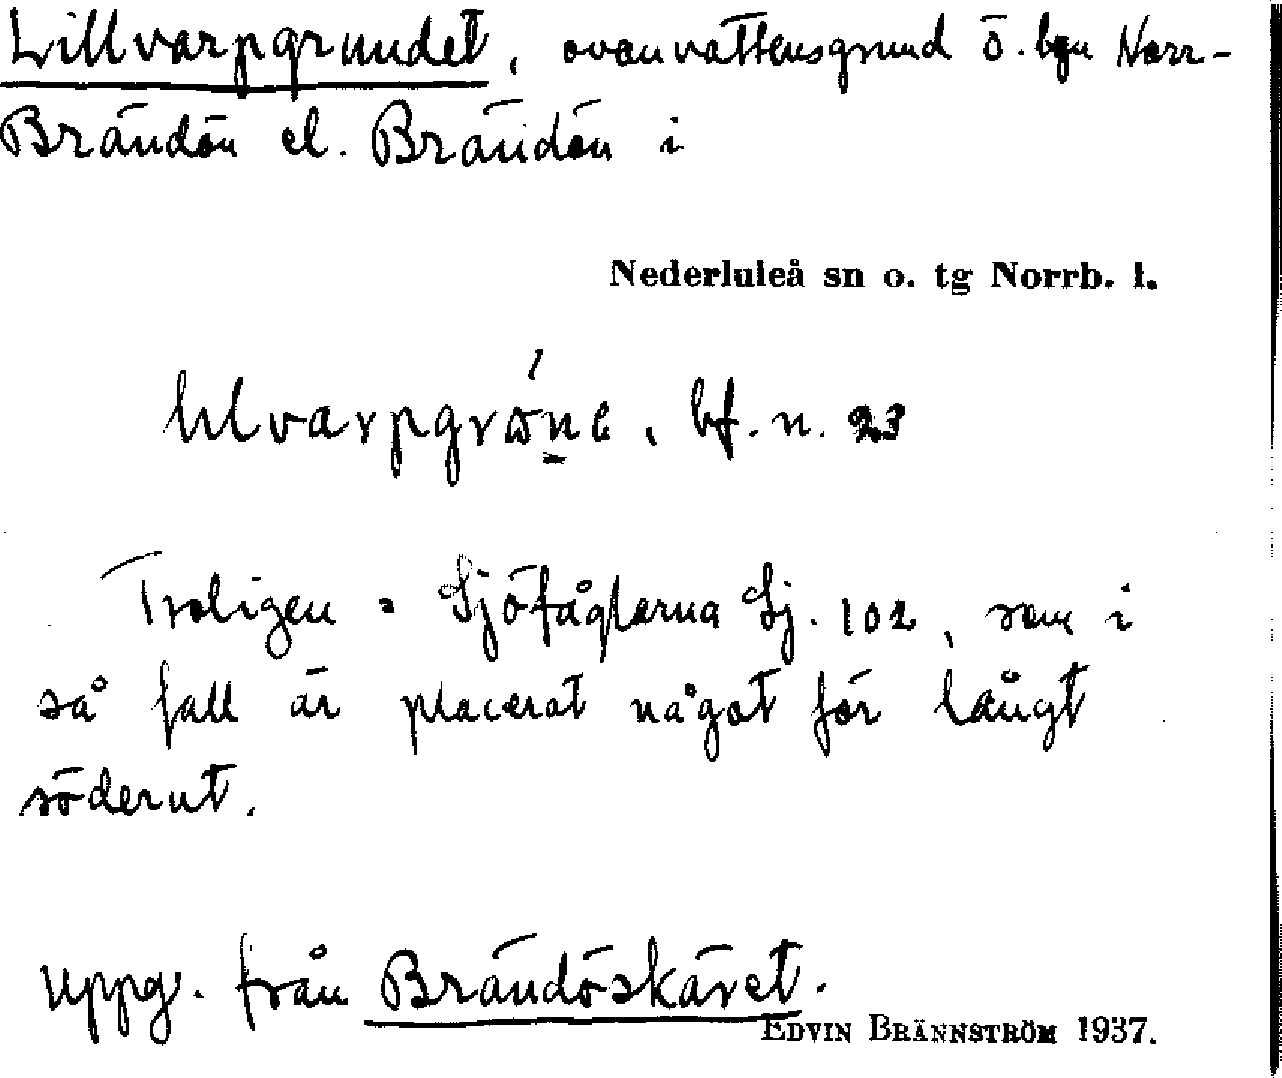 Lillvarpgrundet, ovanvattensgrund ö. byn Norr-
Brändön el. Brändön i
Nederluleå sn o. tg Norrb. l.
bf. n. 23
Troligen = Sjöfåglarna Sj. 102, som i
så fall är placerat något för långt
söderut.
Uppg. från Brändöskäret.
EDVIN BRÄNNSTRÖM 1937.